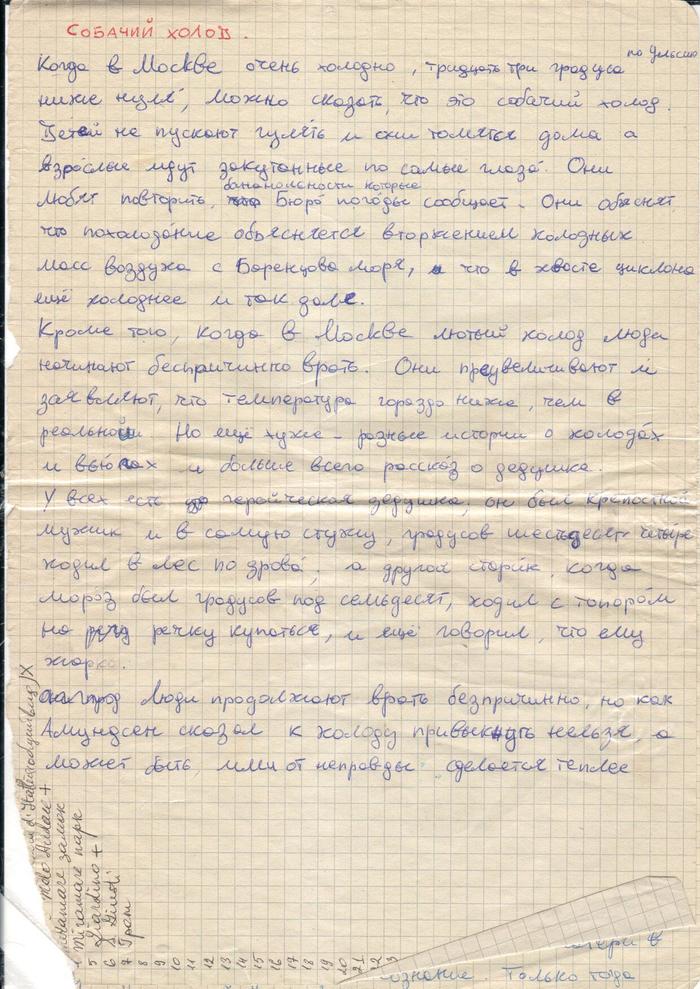 СОБАЧИЙ ХОЛОД.
по Цельсию
Когда в Москве очень холодно, тридцать три градуса
ниже нуля, можно сказать, что это собачий холод.
Детей не пускают гулять и они томятся дома а
взрослые идут закутанные по самые глаза. Они
банальности которые
любят повторить, Бюро погоды сообщает. Они объяснят
что похолодание объясняется вторжением холодных
масс воздуха с Баренцова моря, и что в хвосте циклона
ещё холоднее и так дале.
Кроме того, когда в Москве лютый холод люди
начинают беспричинно врать. Они преувеличивают и
заявляют, что температура гораздо ниже, чем в
реальной Но ещё хуже - разные истории о холодах
и вьюгах и больше всего рассказ о дедушке.
У всех есть геройческая дедушка; он был крепостной
мужик и в самую стужу, градусов шестьдесят четыре
ходил в лес по дрова; а другой старик, когда
мороз был градусов под семьдесят, ходил с топором
на речку купаться, и ещё говорил, что ему
жарко.
Люди продолжают врать безпричинно, но как
Амундсен сказал к холоду привыкнуть нельзя, а
может быть, ими от неправды сделается теплее
замок
Miramare парк
5 Giardino +
6 S Giusti
7 Грот
8
9
10
11
12
13
14
15
16
17
18
19
20
21
22
в
ознание. Только тогда